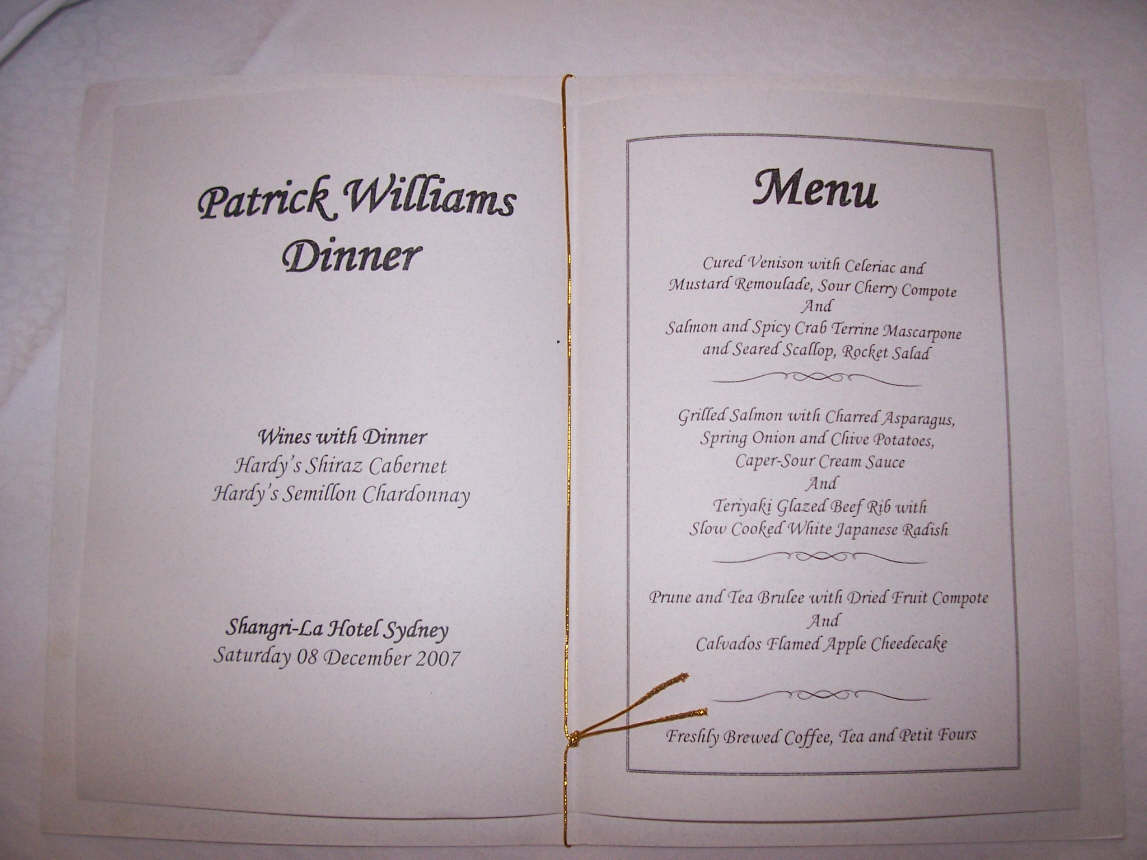 Patrick Williams
Dinner
Wines with Dinner
Hardy's Shiraz Cabernet
Hardy's Semillon Chardonnay
Shangri-La Hotel Sydney
Saturday 08 December 2007
Menu
Cured Venison with Celeriac and
Mustard Remoulade, Sour Cherry Compote
And
Salmon and Spicy Crab Terrine Mascarpone
and Seared Scallop, Rocket Salad
Grilled Salmon with Charred Asparagus,
Spring Onion and Chive Potatoes,
Caper-Sour Cream Sauce
And
Teriyaki Glazed Beef Rib with
Slow Cooked White Japanese Radish
Prune and Tea Brulee with Dried Fruit Compote
And
Calvados Flamed Apple Cheedecake
Freshly Brewed Coffee, Tea and Petit Fours